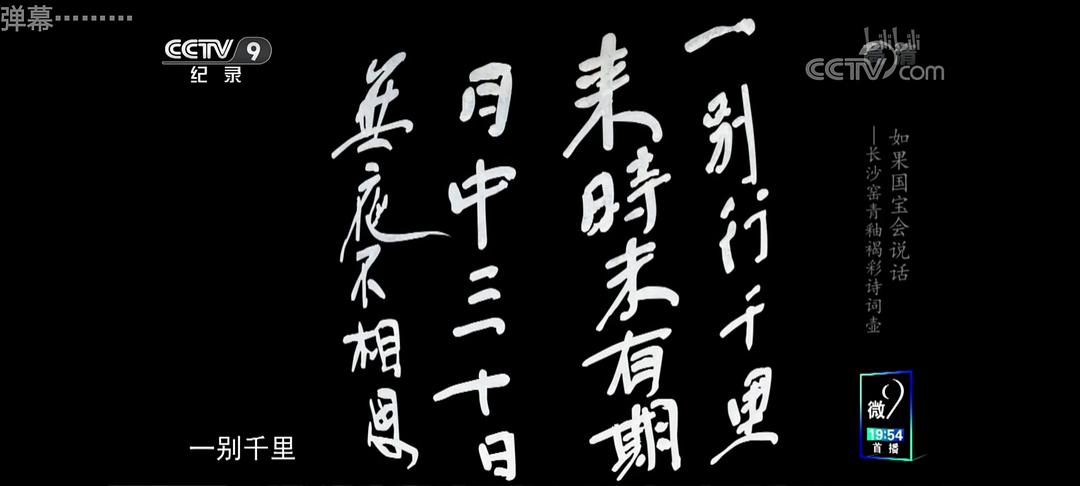 弹幕………
CCTV 9
纪录
bilibili
高清
CCTV.com
一别行千里
来時未有期
月中三十日
無夜不相思
如果国宝会说话
—长沙窑青釉褐彩诗词壶
微9
19:54
首播
一别千里